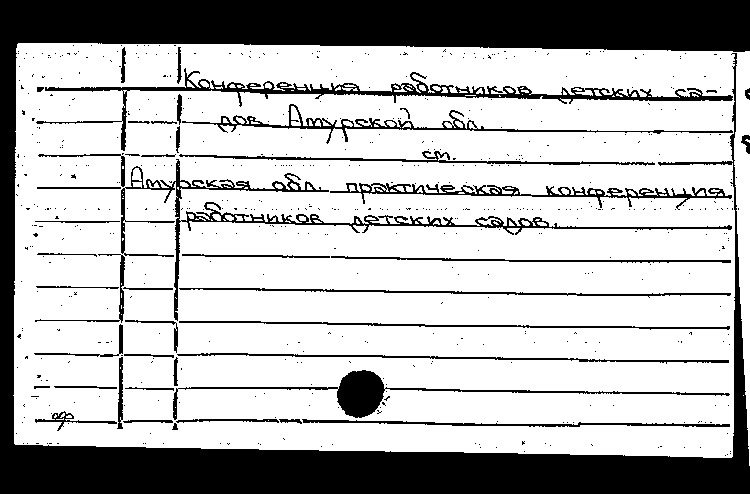 Конференция работников детских са-
дов Амурской обл.
см.
Амурская обл. практическая конференция
работников детских садов.